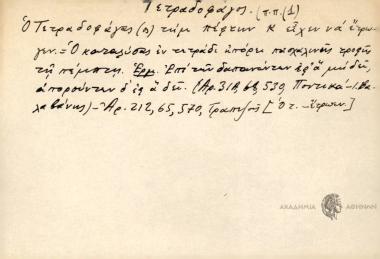 Τετραδοφάγος. (π.π. (1)
Ὁ Τετραδοφάγος (ος) τὴμ πέφτην κ̓ εἶχεν νὰ ἔτρω-
γεν. = Ὁ καταλύσας ἐν τετράδι ἀπορεῖ πασχαλινῆς τροφῆς
τῇ πέμπτῃ. Ἑρμ. Ἐπὶ τῶν δαπανώντων ἐφ' ἃ μὴ δεῖ,
ἀπορούντων δ' ἐφ' ἃ δεῖ. (Ἀρ. 318, 68, 539, Ποντικά-Ι. Βα-
λαβάνης) - Ἀρ. 212, 65, 570, Τραπεζοῦς [Ὁ τ. - ἔτρωεν.]
ΑΚΑΔΗΜΙΑ ΑΘΗΝΩΝ